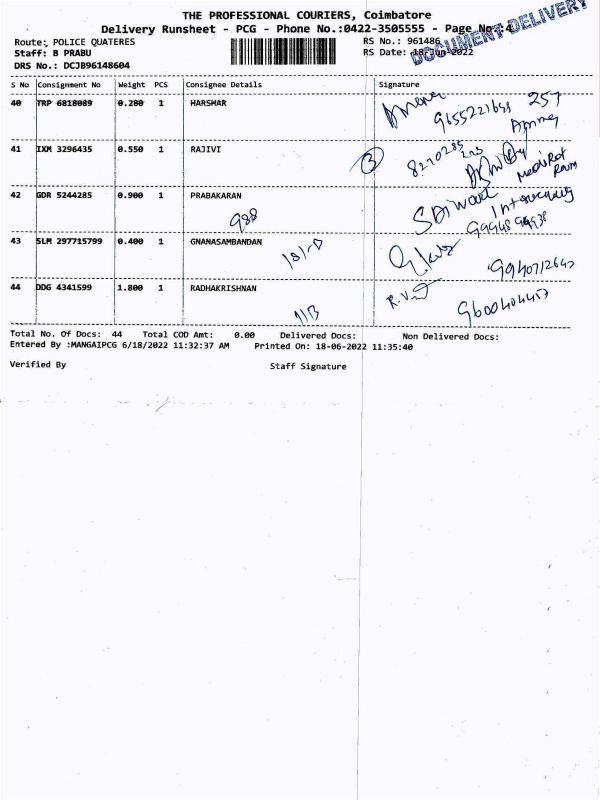 THE PROFESSIONAL COURIERS, Coimbatore
Delivery Runsheet - PCG - Phone No.:0422-3505555 - Page No.:4
DOCUMENT DELIVERY
Route: POLICE QUATERES
RS No.: 961486
Staff: B PRABU
RS Date: 18-Jun-2022
DRS No.: DCJB96148604
S No Consignment No Weight PCS Consignee Details Signature
40 TRP 6818089 0.280 1 HARSHAR
9655221658 257
41 IXM 3296435 0.550 1 RAJIVI
3
42 GDR 5244285 0.900 1 PRABAKARAN
988
43 SLM 297715799 0.400 1 GNANASAMBANDAN
9940712642
44 DDG 4341599 1.800 1 RADHAKRISHNAN
1113 9600404457
Total No. Of Docs: 44 Total COD Amt: 0.00 Delivered Docs: Non Delivered Docs:
Entered By :MANGAIPCG 6/18/2022 11:32:37 AM Printed On: 18-06-2022 11:35:40
Verified By Staff Signature